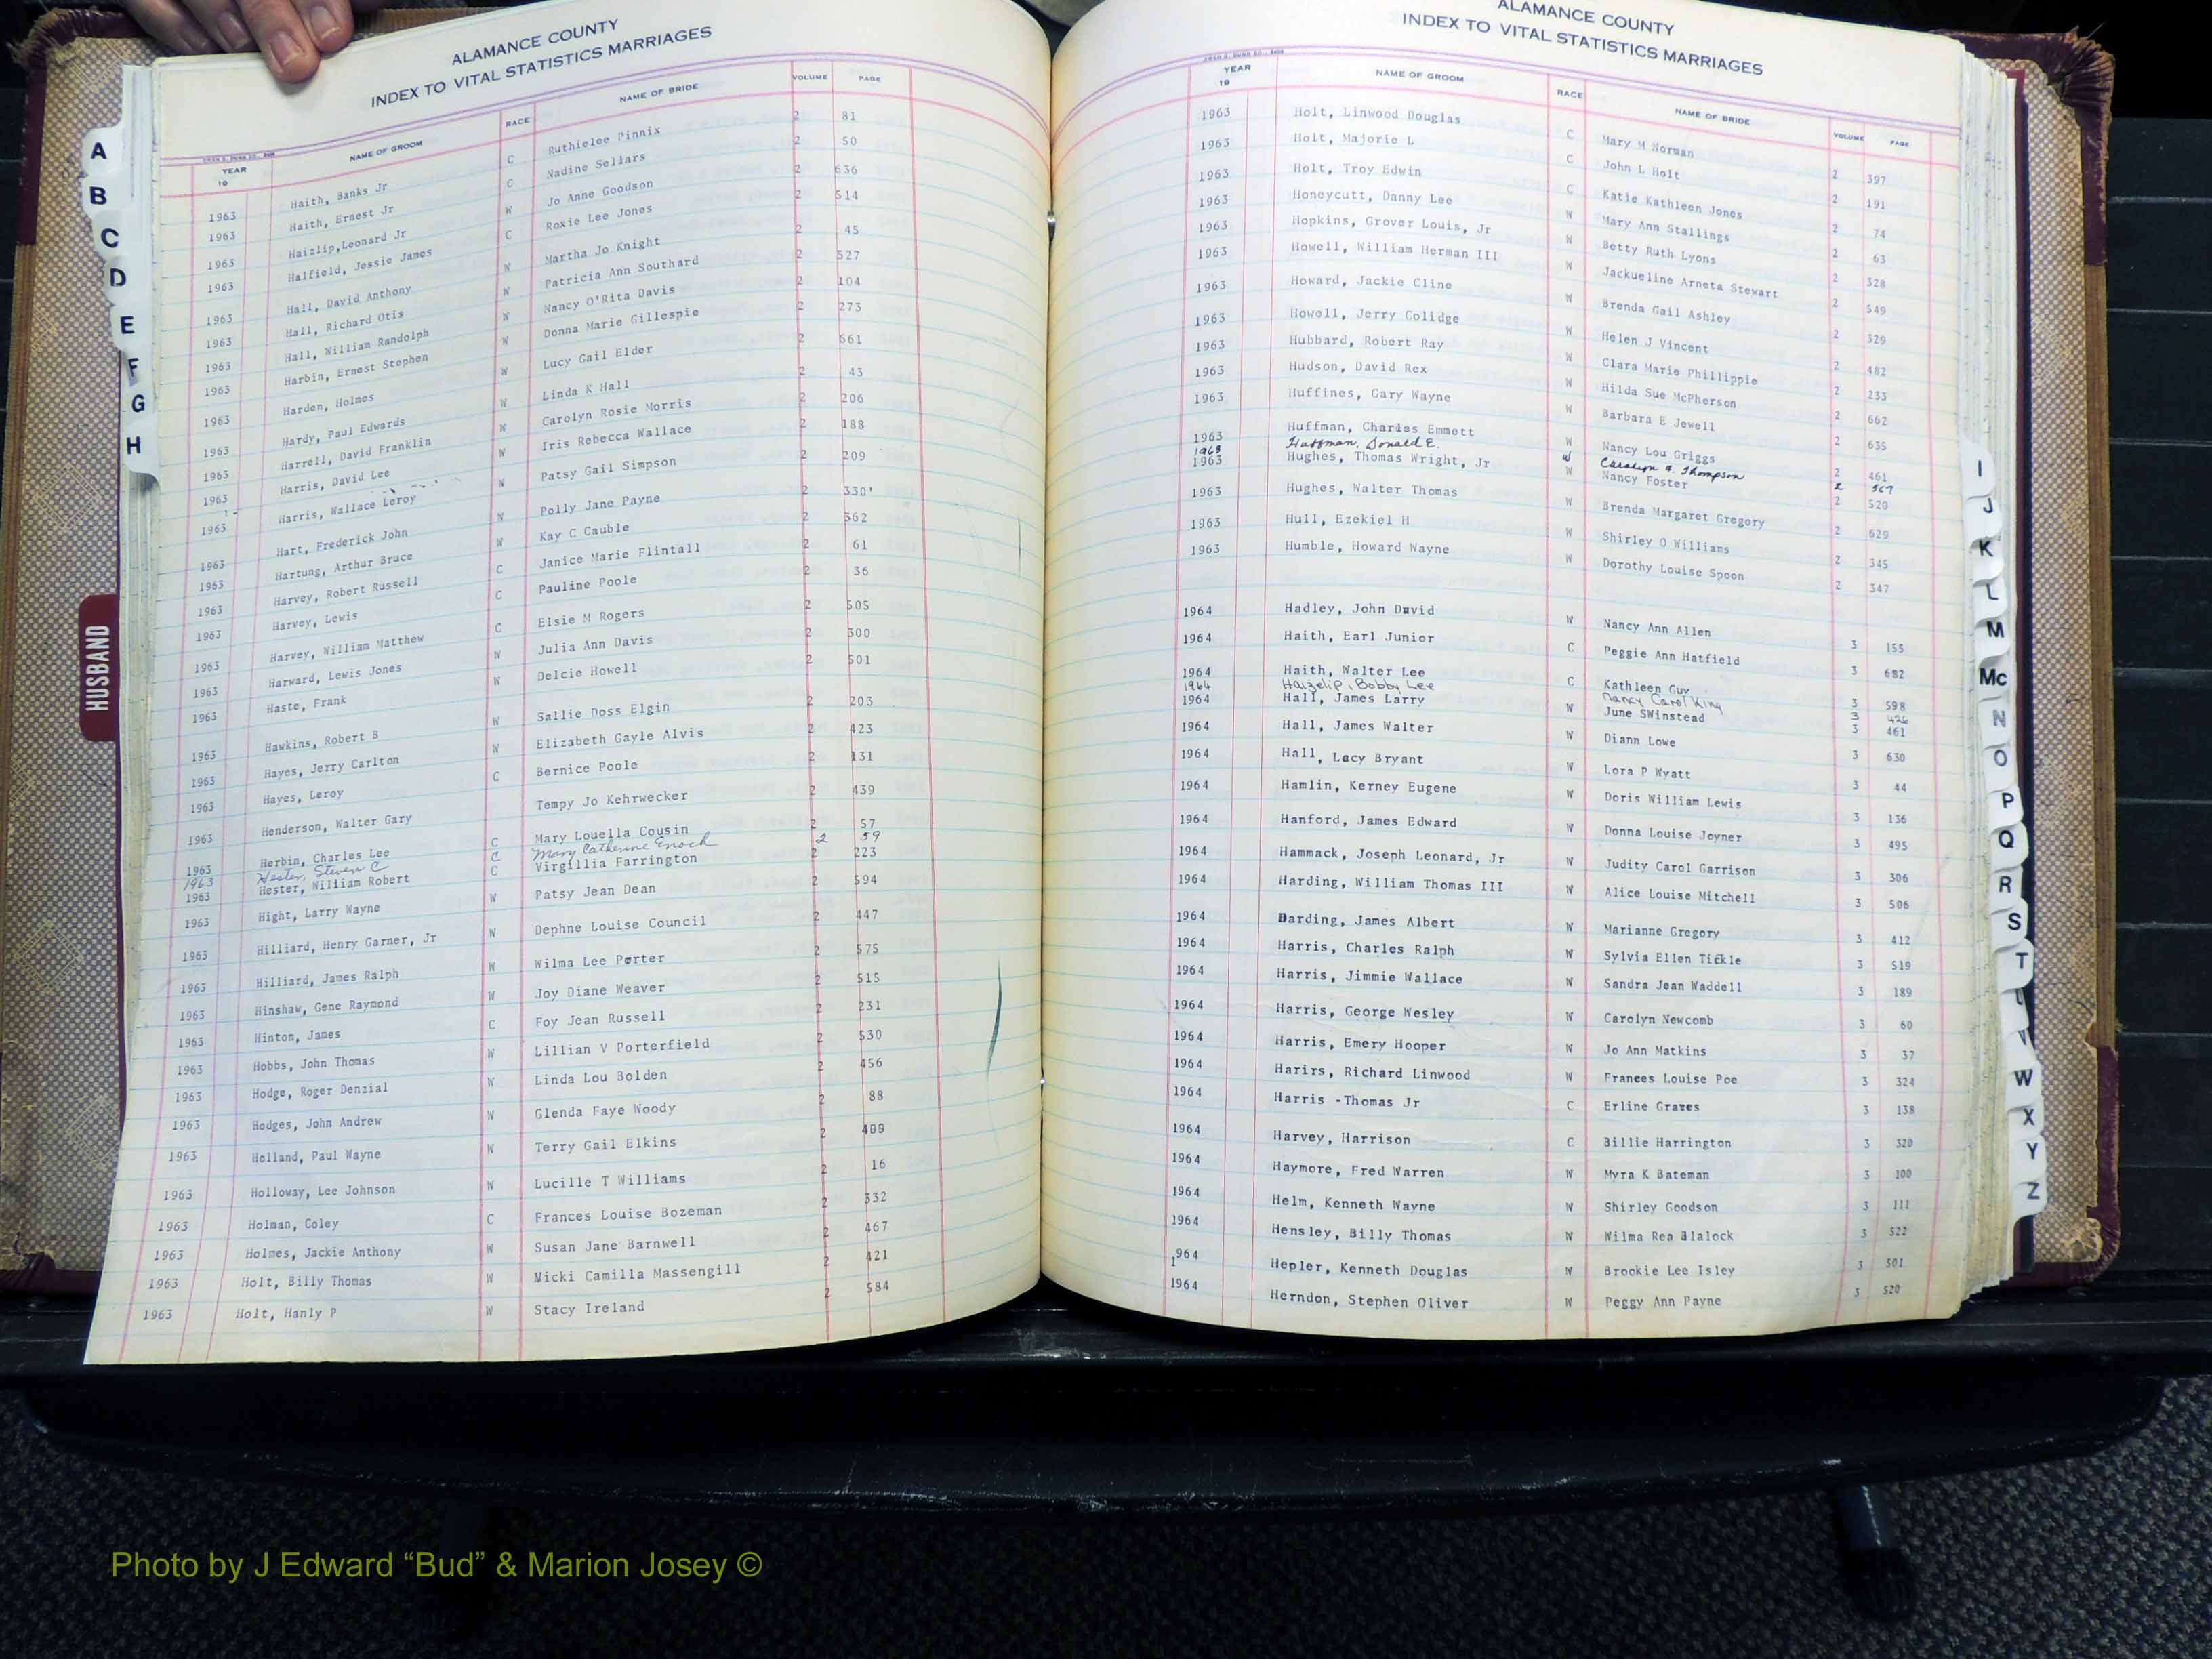 ALAMANCE COUNTY
INDEX TO VITAL STATISTICS MARRIAGES
YEAR 19 NAME OF GROOM RACE NAME OF BRIDE VOLUME PAGE
1963 Haith, Banks Jr C Ruthielee Pinnix 2 81
1963 Haith, Ernest Jr C Nadine Sellars 2 50
1963 Haizlip, Leonard Jr W Jo Anne Goodson 2 636
1963 Halfield, Jessie James C Roxie Lee Jones 2 514
1963 Hall, David Anthony W Martha Jo Knight 2 45
1963 Hall, Richard Otis W Patricia Ann Southard 2 527
1963 Hall, William Randolph W Nancy O'Rita Davis 2 104
1963 Harbin, Ernest Stephen W Donna Marie Gillespie 2 273
1963 Harden, Holmes W Lucy Gail Elder 2 661
1963 Hardy, Paul Edwards W Linda K Hall 2 43
1963 Harrell, David Franklin W Carolyn Rosie Morris 2 206
1963 Harris, David Lee W Iris Rebecca Wallace 2 188
1963 Harris, Wallace Leroy W Patsy Gail Simpson 2 209
1963 Hart, Frederick John W Polly Jane Payne 2 330
1963 Hartung, Arthur Bruce W Kay C Cauble 2 562
1963 Harvey, Robert Russell C Janice Marie Flintall 2 61
1963 Harvey, Lewis C Pauline Poole 2 36
1963 Harvey, William Matthew C Elsie M Rogers 2 505
1963 Harward, Lewis Jones W Julia Ann Davis 2 300
1963 Haste, Frank W Delcie Howell 2 501
1963 Hawkins, Robert B W Sallie Doss Elgin 2 203
1963 Hayes, Jerry Carlton W Elizabeth Gayle Alvis 2 423
1963 Hayes, Leroy C Bernice Poole 2 131
1963 Henderson, Walter Gary Tempy Jo Kehrwecker 2 439
1963 Herbin, Charles Lee C Mary Louella Cousin 2 57
1963 Hester, Steven C C Mary Catherine Enoch 2 59
1963 Hester, William Robert C Virgillia Farrington 2 223
1963 Hight, Larry Wayne W Patsy Jean Dean 2 594
1963 Hilliard, Henry Garner, Jr W Dephne Louise Council 2 447
1963 Hilliard, James Ralph W Wilma Lee Porter 2 575
1963 Hinshaw, Gene Raymond W Joy Diane Weaver 2 515
1963 Hinton, James C Foy Jean Russell 2 231
1963 Hobbs, John Thomas W Lillian V Porterfield 2 530
1963 Hodge, Roger Denzial W Linda Lou Bolden 2 456
1963 Hodges, John Andrew W Glenda Faye Woody 2 88
1963 Holland, Paul Wayne W Terry Gail Elkins 2 409
1963 Holloway, Lee Johnson W Lucille T Williams 2 16
1963 Holman, Coley C Frances Louise Bozeman 2 332
1963 Holmes, Jackie Anthony W Susan Jane Barnwell 2 467
1963 Holt, Billy Thomas W Micki Camilla Massengill 2 421
1963 Holt, Hanly P W Stacy Ireland 2 584
A
B
C
D
E
F
G
H
HUSBAND
ALAMANCE COUNTY
INDEX TO VITAL STATISTICS MARRIAGES
YEAR 19 NAME OF GROOM RACE NAME OF BRIDE VOLUME PAGE
1963 Holt, Linwood Douglas C Mary M Norman 2 397
1963 Holt, Majorie L C John L Holt 2 191
1963 Holt, Troy Edwin C Katie Kathleen Jones 2 74
1963 Honeycutt, Danny Lee W Mary Ann Stallings 2 63
1963 Hopkins, Grover Louis, Jr W Betty Ruth Lyons 2 328
1963 Howell, William Herman III W Jackueline Arneta Stewart 2 549
1963 Howard, Jackie Cline W Brenda Gail Ashley 2 329
1963 Howell, Jerry Colidge W Helen J Vincent 2 482
1963 Hubbard, Robert Ray W Clara Marie Phillippie 2 233
1963 Hudson, David Rex W Hilda Sue McPherson 2 662
1963 Huffines, Gary Wayne W Barbara E Jewell 2 635
1963 Huffman, Charles Emmett W Nancy Lou Griggs 2 461
1963 Huffman, Donald E. W Carolyn Thompson 2 567
1963 Hughes, Thomas Wright, Jr W Nancy Foster 2 520
1963 Hughes, Walter Thomas W Brenda Margaret Gregory 2 629
1963 Hull, Ezekiel H W Shirley O Williams 2 345
1963 Humble, Howard Wayne W Dorothy Louise Spoon 2 347
1964 Hadley, John David W Nancy Ann Allen 3 155
1964 Haith, Earl Junior C Peggie Ann Hatfield 3 682
1964 Haith, Walter Lee C Kathleen Guy 3 598
1964 Haizelip, Bobby Lee Nancy Carol King 3 426
1964 Hall, James Larry W June SWinstead 3 461
1964 Hall, James Walter W Diann Lowe 3 630
1964 Hall, Lacy Bryant W Lora P Wyatt 3 44
1964 Hamlin, Kerney Eugene W Doris William Lewis 3 136
1964 Hanford, James Edward W Donna Louise Joyner 3 495
1964 Hammack, Joseph Leonard, Jr W Judity Carol Garrison 3 306
1964 Harding, William Thomas III W Alice Louise Mitchell 3 506
1964 Darding, James Albert W Marianne Gregory 3 412
1964 Harris, Charles Ralph W Sylvia Ellen Tickle 3 519
1964 Harris, Jimmie Wallace W Sandra Jean Waddell 3 189
1964 Harris, George Wesley W Carolyn Newcomb 3 60
1964 Harris, Emery Hooper W Jo Ann Matkins 3 37
1964 Harirs, Richard Linwood W Frances Louise Poe 3 324
1964 Harris -Thomas Jr C Erline Graves 3 138
1964 Harvey, Harrison C Billie Harrington 3 320
1964 Haymore, Fred Warren W Myra K Bateman 3 100
1964 Helm, Kenneth Wayne W Shirley Goodson 3 111
1964 Hensley, Billy Thomas W Wilma Rea Blalock 3 522
1964 Hepler, Kenneth Douglas W Brookie Lee Isley 3 501
1964 Herndon, Stephen Oliver W Peggy Ann Payne 3 520
I
J
K
L
M
Mc
N
O
P
Q
R
S
T
U
V
W
X
Y
Z
Photo by J Edward “Bud” & Marion Josey ©